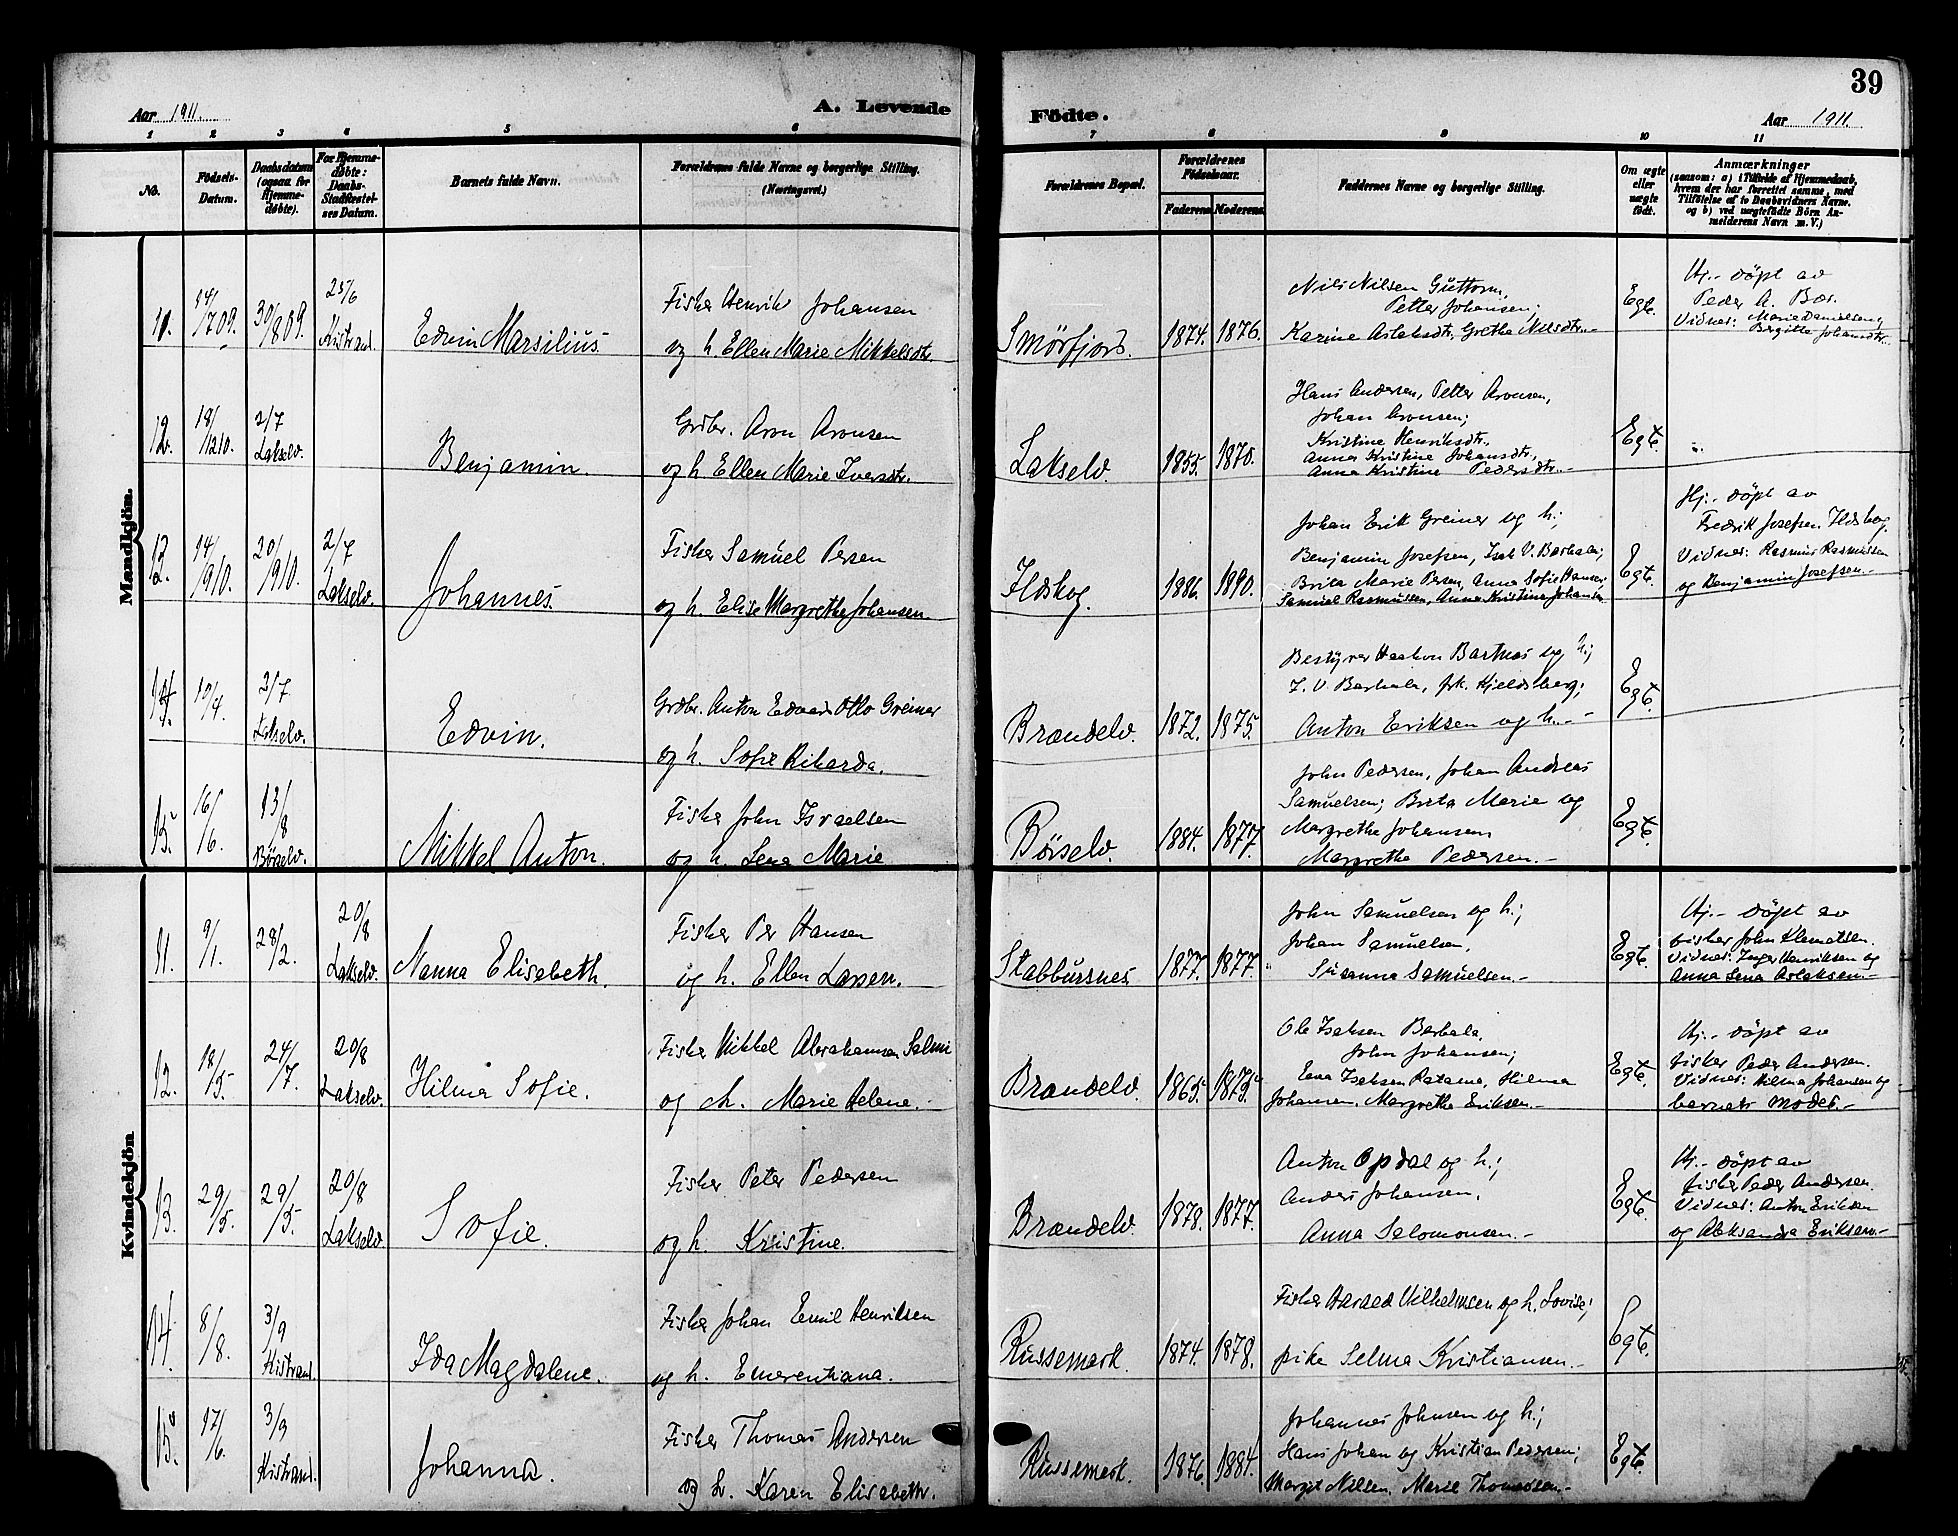 39
Aar 1911.
A. Levende
Födte.
Aar 1911.
1 2 3 4 5 6 7 8 9 10 11
No.
Födsels-
Datum.
Daabsdatum
(ogsaa for
Hjemme-
døbte).
For Hjemme-
døbte:
Daabs-
Stadfæstel-
ses Datum.
Barnets fulde Navn.
Forældrenes fulde Navne og borgerlige Stilling.
(Næringsvei.)
Forældrenes Bopæl.
Forældrenes
Födselsaar.
Faderens
Moderens.
Faddernes Navne og borgerlige Stilling.
Om ægte
eller
uægte
født.
Anmærkninger
(saasom: a) i Tilfælde af Hjemmedaab,
hvem der har forrettet samme, med
Tilføielse af to Daabsvidners Navne.
og b) ved uægtefödte Börn An-
melderens Navn m.V.)
Mandkjön.
11.
14/709.
30/809.
25/6
Kistrand.
Edvin Marsilius.
Fisker Henrik Johansen
og h. Ellen Marie Mikkelsdtr.
Smørfjord.
1874.
1876.
Nils Nilsen Guttorm,
Petter Johansen;
Karine Aslaksdtr, Grethe Nilsdtr.-
Egte.
Hj.- döpt av
Peder A. Bær.
Vidner: Marie Danielsen,
Birgitte Johansdtr.
12.
18/1210.
2/7
Lakselv.
Benjamin.
Grdbr. Aron Aronsen
og h. Ellen Marie Iversdtr.
Lakselv.
1855.
1870.
Hans Andersen, Petter Aronsen,
Johan Aronsen;
Kristine Henriksdtr.
Anna Kristine Johansdtr,
Anna Kristine Pedersdtr.-
Egte.
13.
14/910.
20/910.
2/7
Lakselv.
Johannes.
Fisker Samuel Persen
og h. Elise Margrethe Johansen.
Ildskog.
1886.
1890.
Johan Erik Greiner og h.;
Benjamin Josefsen, Isak V. Barhala;
Brita Marie Persen, Anna Sofie Hansen,
Samuel Rasmussen, Anna Kristine Johansen
Egte.
Hj.- döpt av
Fredrik Josefsen, Ildskog.
Vidner: Rasmus Rasmussen
og Benjamin Josefsen.-
14.
10/4.
2/7
Lakselv.
Edvin.
Grdbr. Anton Edvard Otto Greiner
og h. Sofie Rikarda.
Brændelv.
1872.
1875.
Bestyrer Haakon Bartnes og h.;
I. V. Barhala, frk. Kjeldsberg;
Anton Eriksen og h.-
Egte.
15.
16/6.
13/8
Børselv.
Mikkel Anton.
Fisker John Israelsen
og h. Lena Marie
Børselv.
1884.
1877.
John Pedersen, Johan Andreas
Samuelsen; Brita Marie og
Margrethe Johansen
Margrethe Pedersen.-
Egte.
Kvindekjön
11.
9/1.
28/2.
20/8
Lakselv.
Nanna Elisabeth.
Fisker Per Hansen
og h. Ellen Larsen.
Stabbursnes
1877.
1877.
John Samuelsen og h.;
Johan Samuelsen,
Susanna Samuelsen.-
Egte.
Hj.- döpt av
fisker John Klemetsen.
Vidner: Inger Henriksen og
Anna Lena Aslaksen.-
12.
18/5.
24/7.
20/8
Lakselv.
Hilma Sofie.
Fisker Mikkel Abrahamsen Salmi
og h. Marie Helene.-
Brændelv.
1865.
1873.
Ole Isaksen Barhala,
John Johansen;
Eva Isaksen Ratama, Hilma
Johansen, Margrethe Eriksen.-
Egte.
Hj.- döpt av
fisker Peder Andersen.
Vidner: Hilma Johansen og
barnets moder.-
13.
29/5.
29/5.
20/8
Lakselv.
Sofie.
Fisker Peter Pedersen
og h. Kristine.
Brændelv.
1878.
1877.
Anton Opdal og h.;
Anders Johansen,
Anna Salomonsen.-
Egte.
Hj.- döpt av
fisker Peder Andersen.
Vidner: Anton Eriksen
og Aleksandra Eriksen.-
14.
8/8.
3/9
Kistrand.
Ida Magdalene.
Fisker Johan Emil Henriksen
og h. Emerentiana.
Russemark.
1874.
1878.
Fisker Harald Vilhelmsen og h. Lovise;
pike Selma Kristiansen.-
Egte.
15.
17/6.
3/9
Kistrand.
Johanna.
Fisker Thomas Andersen
og h. Karen Elisabeth.
Russemark.
1876.
1884.
Johannes Johnsen og h.;
Hans Johan og Kristian Pedersen;
Margit Nilsen, Marie Thomassen.-
Egte.